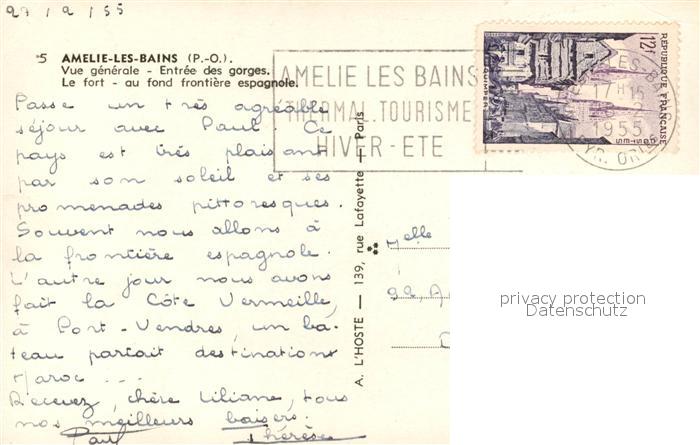 27/2/55
5 AMELIE-LES-BAINS (P.-O.).
Vue générale - Entrée des gorges.
Le fort - au fond frontière espagnole.
Passe un très agréable
séjour avec Paul. Ce
pays est très plaisant
par son soleil et ses
promenades pittoresques.
Souvent nous allons à
la frontière espagnole.
L'autre jour nous avons
fait la Côte Vermeille,
à Port-Vendres, un ba-
teau partait destination
Maroc ...
Recevez, chère Liliane, tous
nos meilleurs baisers.
Paul Thérèse
A. L'HOSTE — 139, rue Lafayette — Paris
AMELIE LES BAINS
THERMAL.TOURISME
HIVER-ETE
REPUBLIQUE FRANÇAISE
12f
QUIMPER
POSTES
LES-BA
17H15
2
1955
YR. ORIE
Melle
privacy protection
Datenschutz